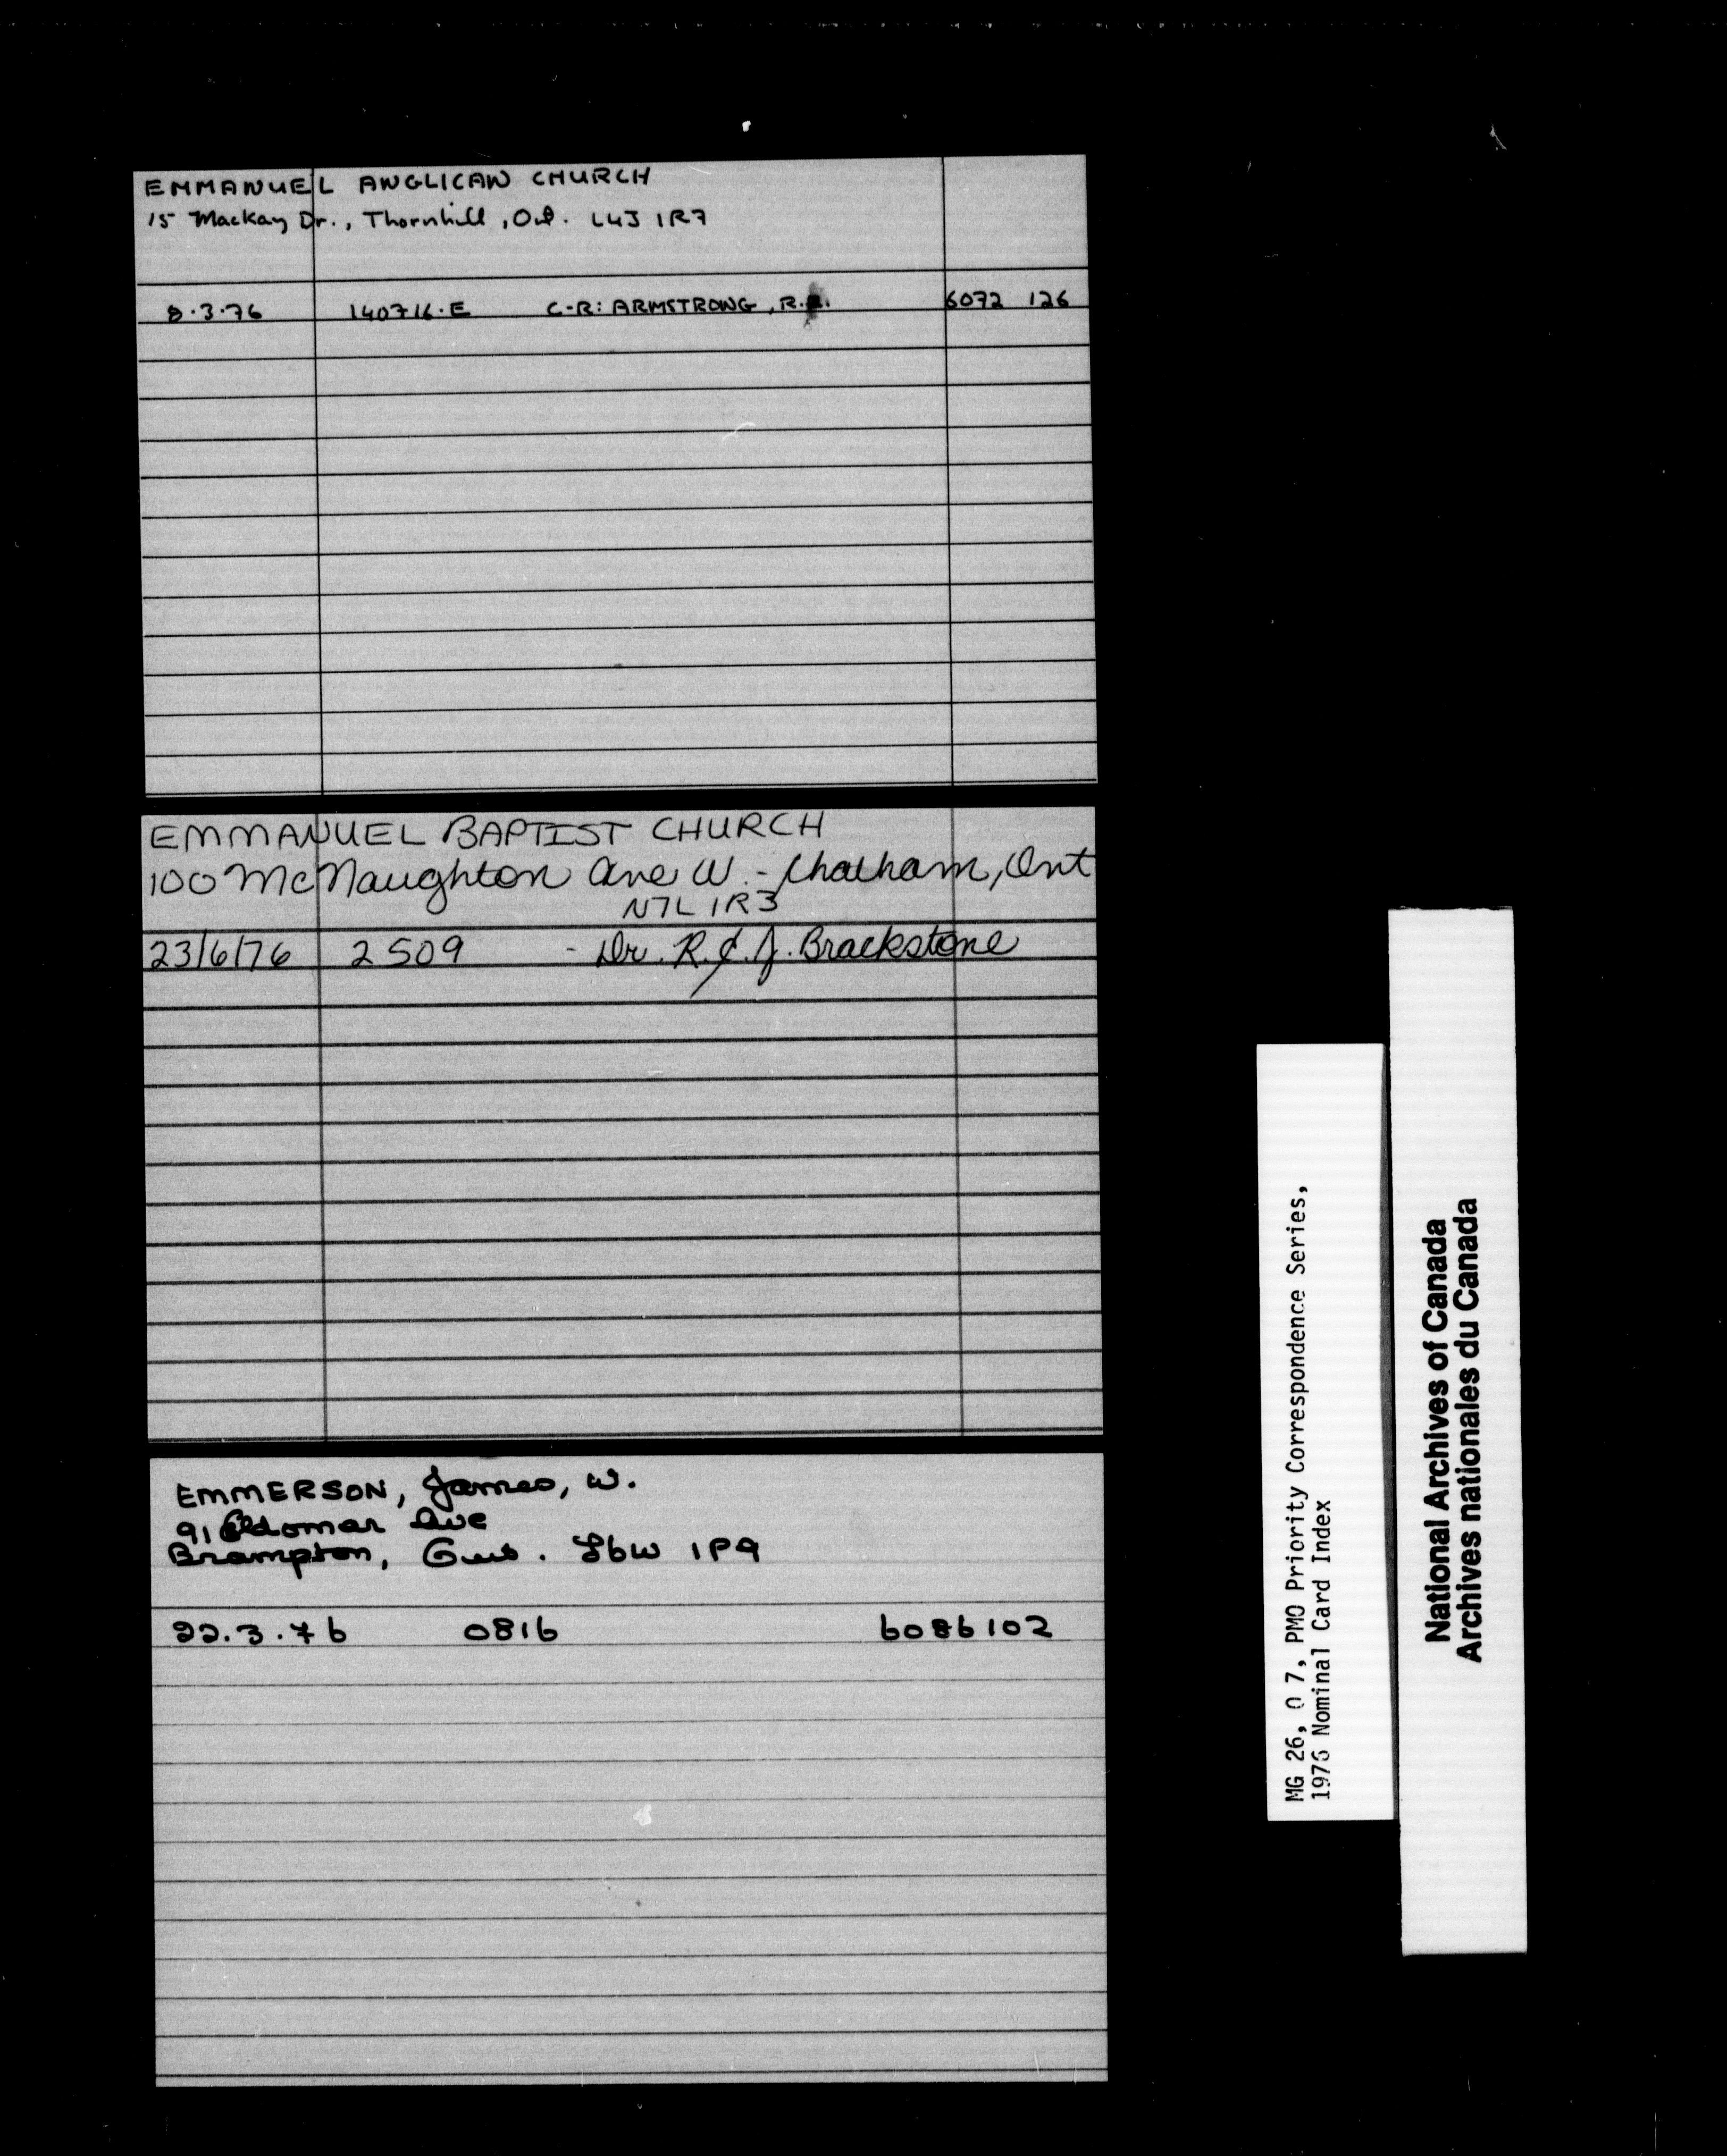 EMMANUEL ANGLICAN CHURCH
15 Mackay Dr., Thornhill, Ont. L4J 1R7
8.3.76 140716.E C-R: ARMSTRONG, R. 6072 126
EMMANUEL BAPTIST CHURCH
100 McNaughton Ave W. - Chatham, Ont
N7L 1R3
23/6/76 2509 - Dr. R. & J. Brackstone
EMMERSON, James, W.
91 Ave
Brampton, Ont. L6W 1P9
22.3.76 0816 6086102
MG 26, O 7, PMO Priority Correspondence Series,
1976 Nominal Card Index
National Archives of Canada
Archives nationales du Canada